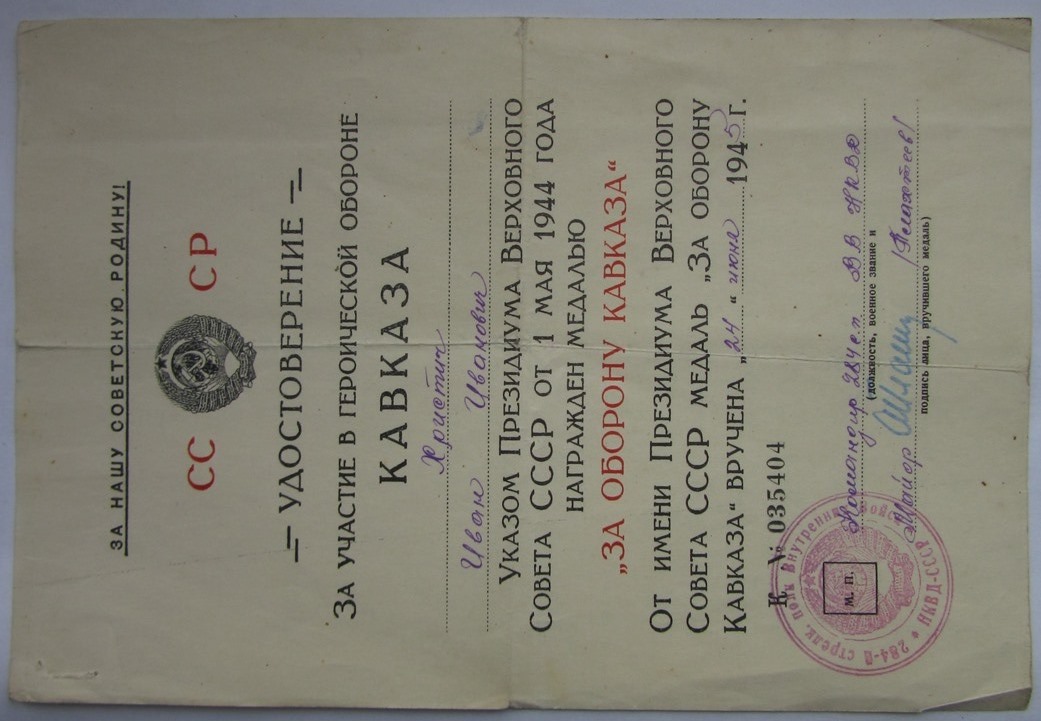 ЗА НАШУ СОВЕТСКУЮ РОДИНУ!
СС СР
УДОСТОВЕРЕНИЕ
ЗА УЧАСТИЕ В ГЕРОИЧЕСКОЙ ОБОРОНЕ
КАВКАЗА
Христич
Иван Иванович
УКАЗОМ ПРЕЗИДИУМА ВЕРХОВНОГО
СОВЕТА СССР ОТ 1 МАЯ 1944 ГОДА
НАГРАЖДЕН МЕДАЛЬЮ
„ЗА ОБОРОНУ КАВКАЗА“
ОТ ИМЕНИ ПРЕЗИДИУМА ВЕРХОВНОГО
СОВЕТА СССР МЕДАЛЬ „ЗА ОБОРОНУ
КАВКАЗА“ ВРУЧЕНА „24“ июня 1945 г.
К № 035404
Командир 284 сп ВВ НКВД
(должность, военное звание и
Майор
подпись лица, вручившего медаль)
М. П.
284-й стрелк полк Внутренних Войск
НКВД-СССР